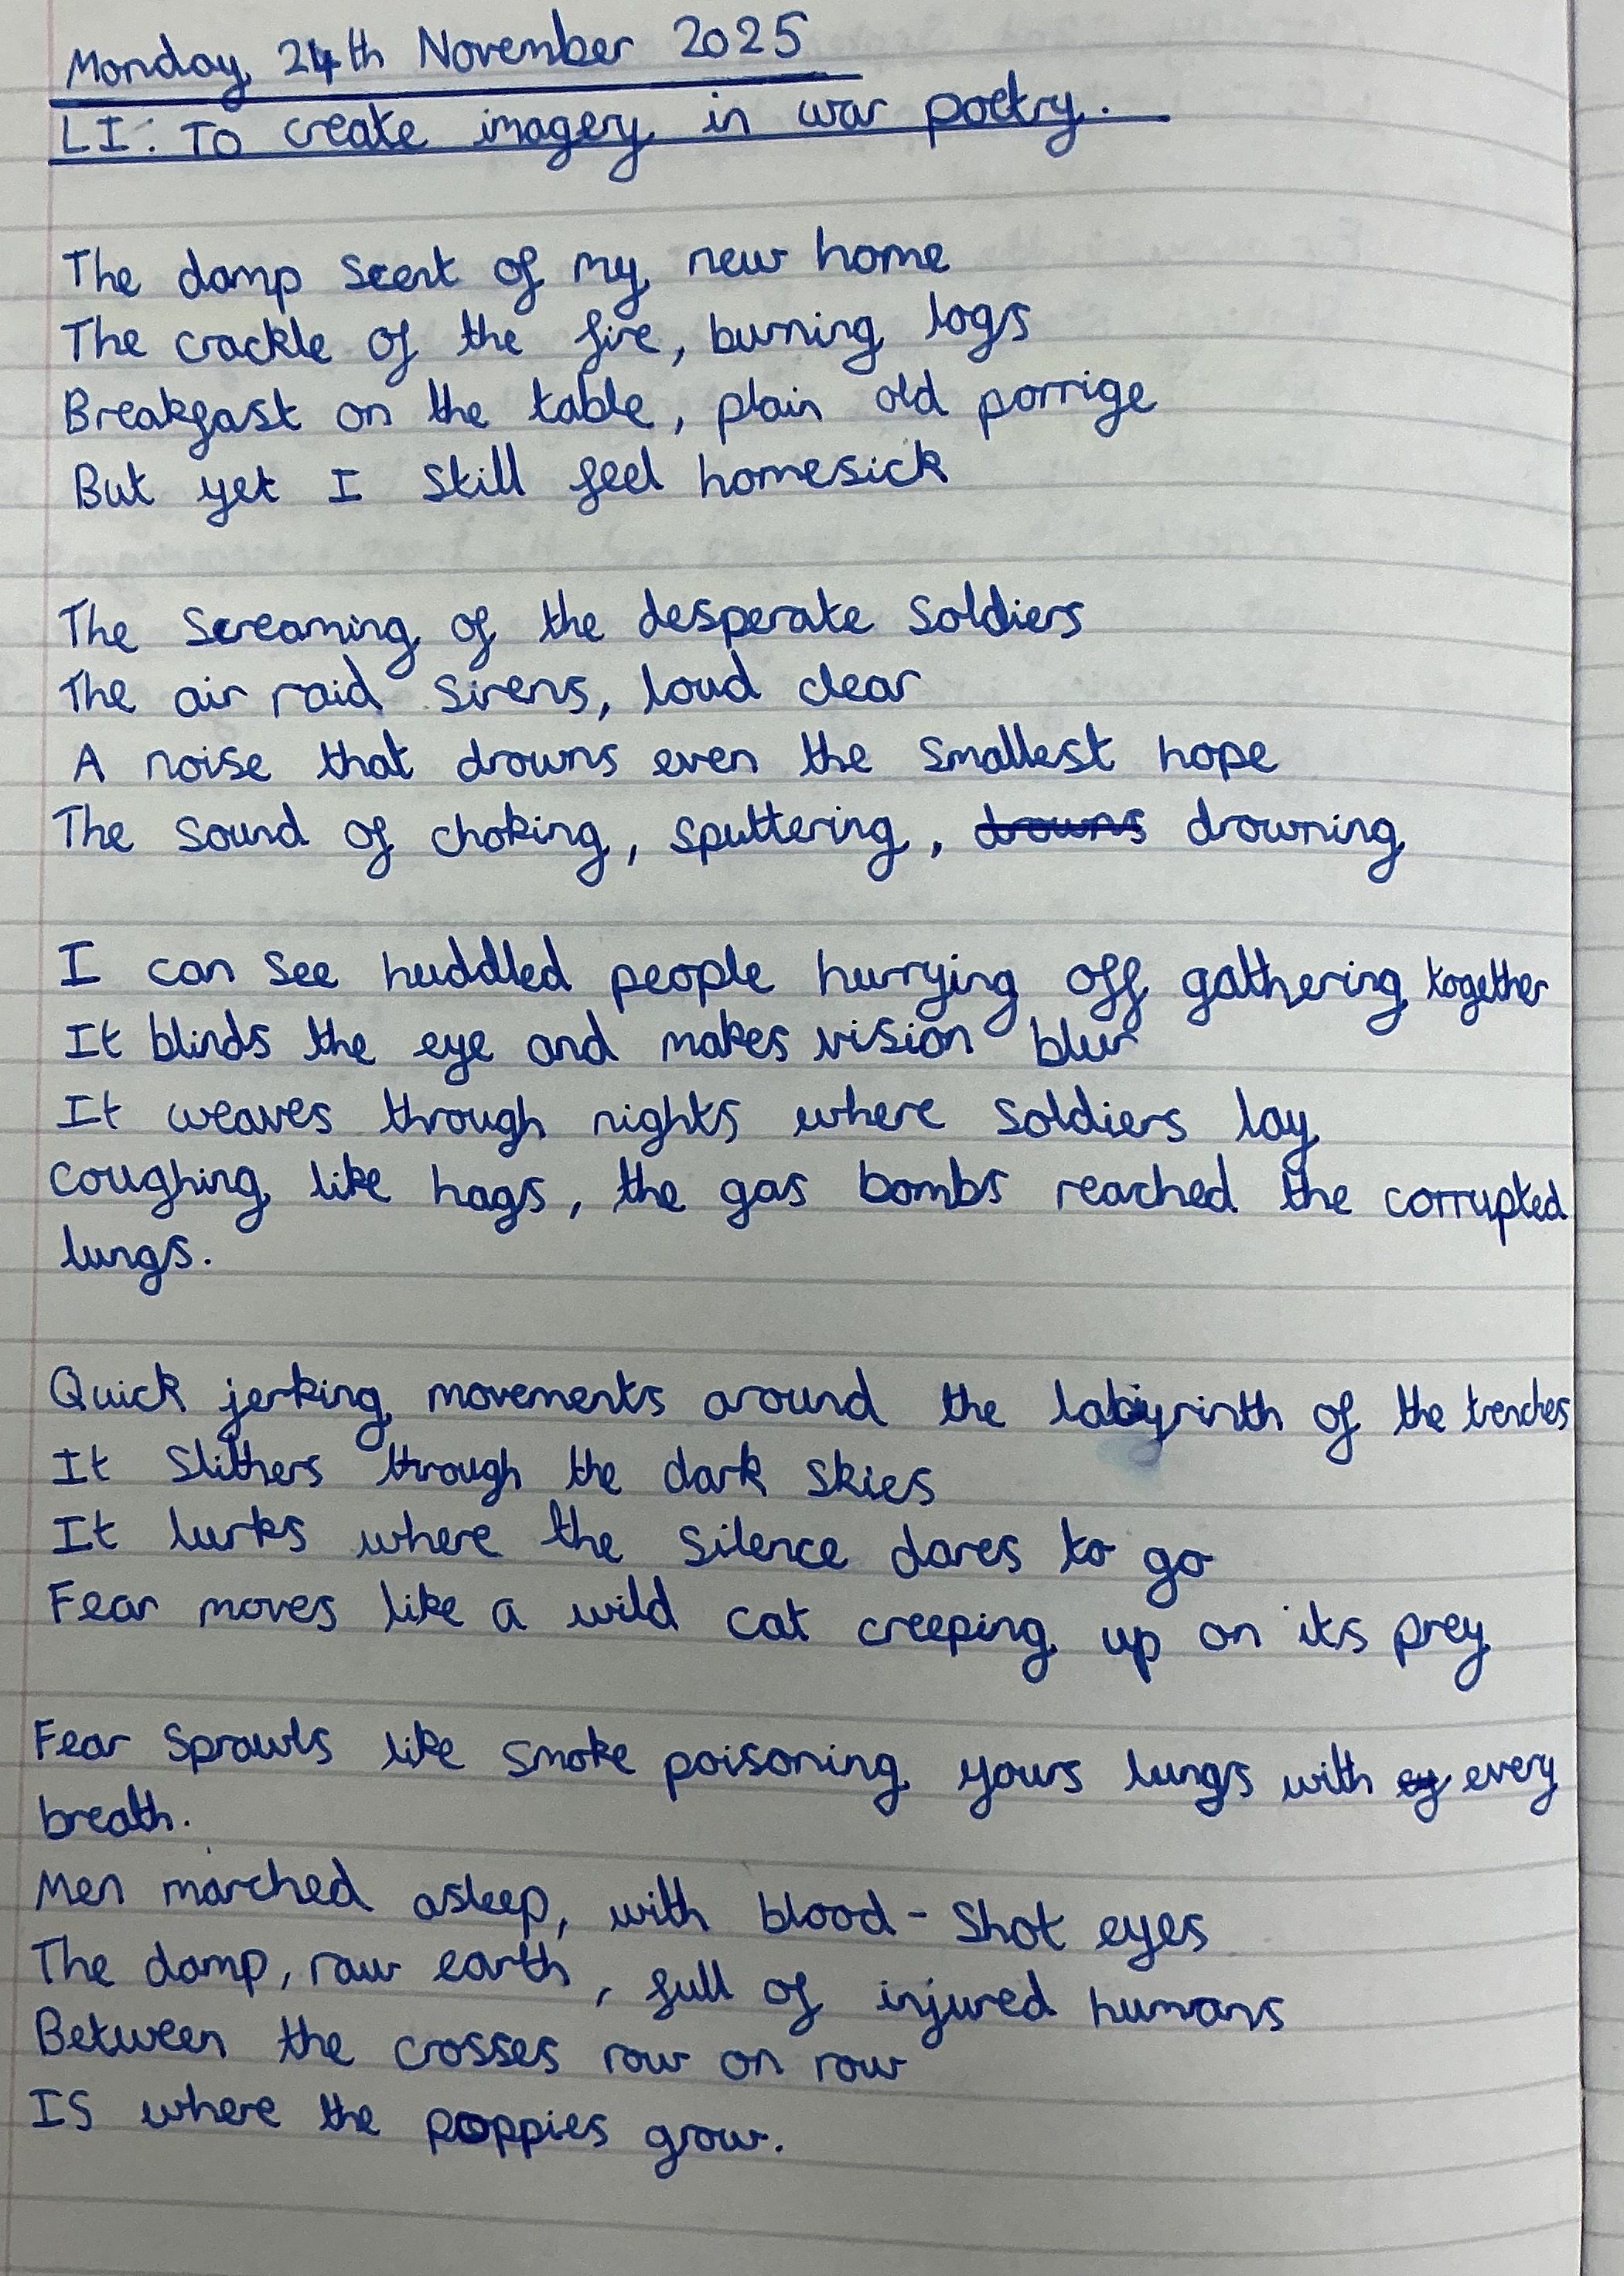 Monday 24th November 2025
LI: To create imagery in war poetry.
The damp scent of my new home
The crackle of the fire, burning logs
Breakfast on the table, plain old porrige
But yet I still feel homesick
The screaming of the desperate soldiers
The air raid sirens, loud clear
A noise that drowns even the smallest hope
The sound of choking, sputtering, drowns drowning
I can see huddled people hurrying off gathering together
It blinds the eye and makes vision blur
It weaves through nights where soldiers lay
coughing like hags, the gas bombs reached the corrupted
lungs.
Quick jerking movements around the labyrinth of the trenches
It slithers through the dark skies
It lurks where the silence dares to go
Fear moves like a wild cat creeping up on its prey
Fear sprawls like smoke poisoning yours lungs with every
breath.
Men marched asleep, with blood-shot eyes
The damp, raw earth, full of injured humans
Between the crosses row on row
Is where the poppies grow.